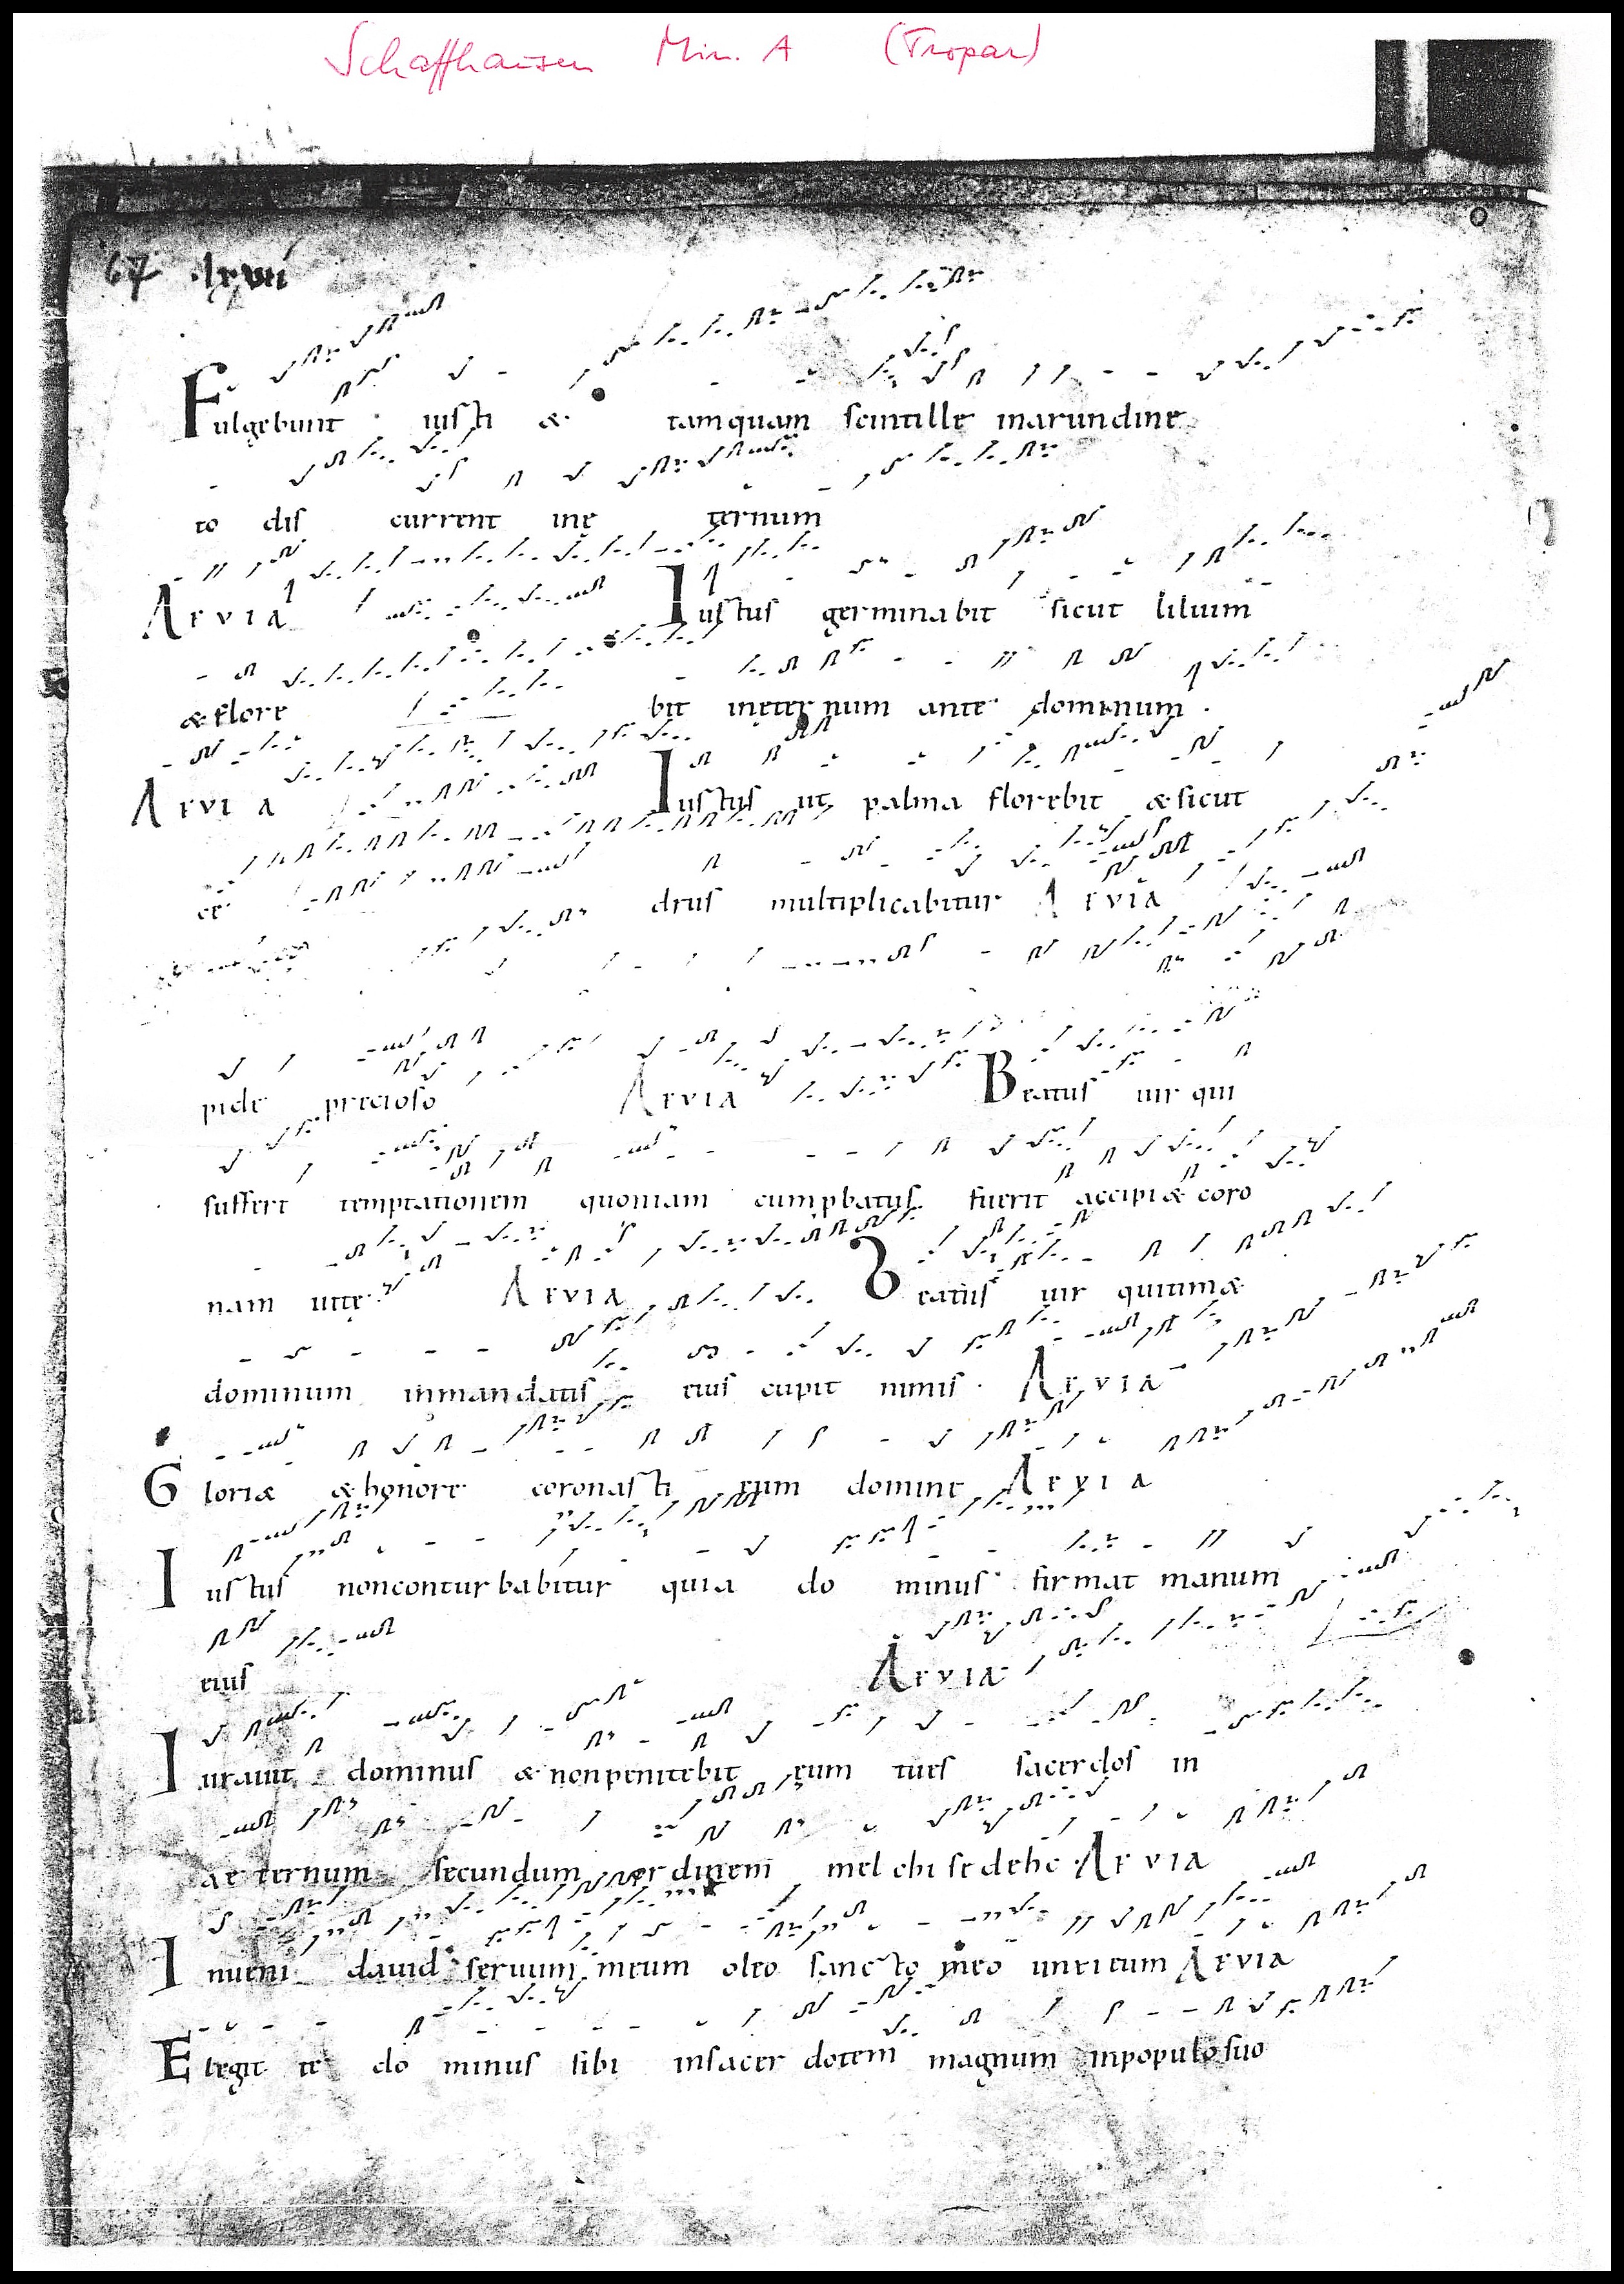 Schaffhausen Min. A (Tropar)
67 .lxvii
Fulgebunt iusti & tamquam scintille inarundine
to dis current inę ternum
Aevia Iustus germinabit sicut lilium
& flore bit ineternum ante dominum.
Aevia Iustus ut palma florebit & sicut
ce drus multiplicabitur Aevia
pide precioso Aevia Beatus uir qui
suffert temptationem quoniam cum pbatus fuerit accipi& coro
nam uitę Aevia Beatus uir quitim&
dominum inmandatis eius cupit nimis. Aevia
Glori& & honore coronasti eum domine Aevia
Iustus nonconturbabitur quia do minus firmat manum
eius Aevia
Iurauit dominus & nonpenitebit eum tues sacerdos in
ae ternum secundum ordinem mel chi se dehc. Aevia
Inueni dauid seruum meum oleo sancto meo unxi eum Aevia
Elegit te do minus sibi insacer dotem magnum inpopulo suo